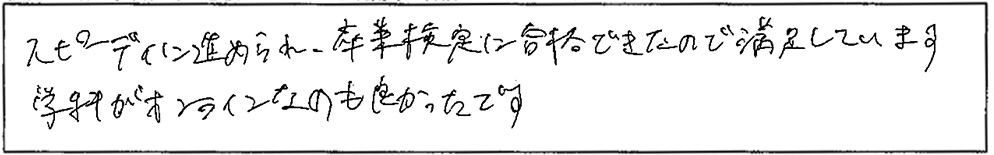 スピーディに進められ、卒業検定に合格できたので満足しています
学科がオンラインなのも良かったです